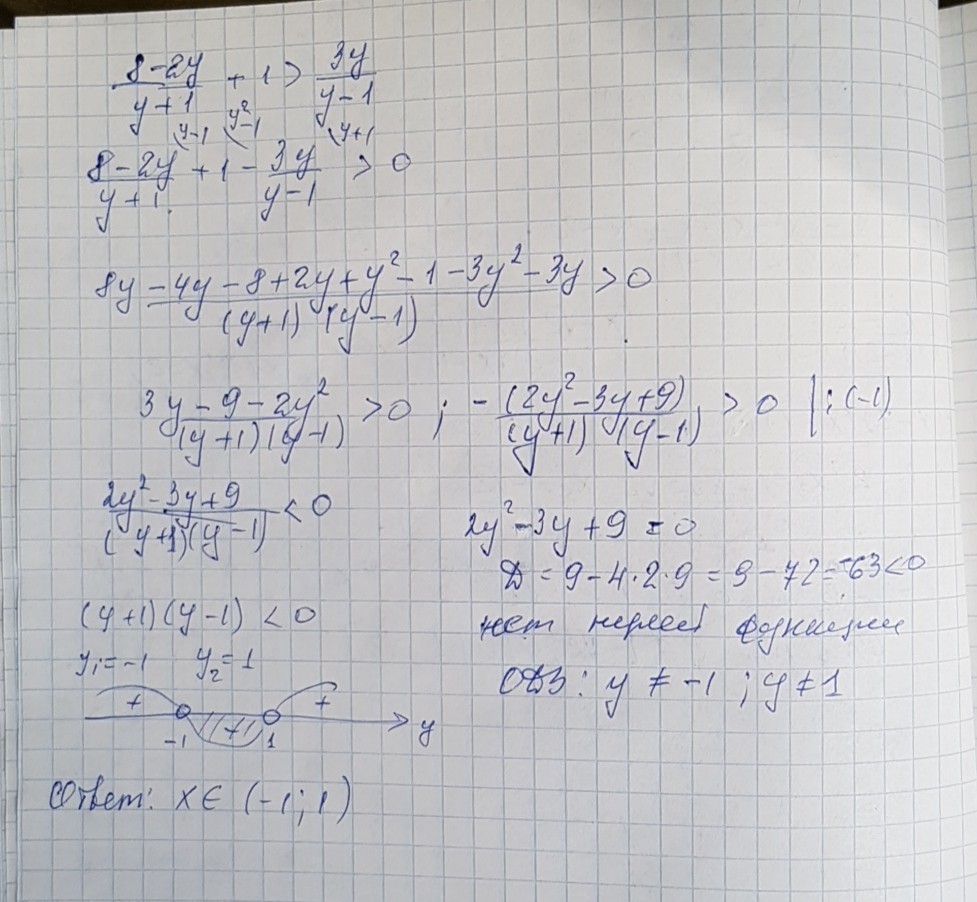 (8-2y)/(y+1) + 1 > 3y/(y-1)
(y-1 (y²-1 (y+1
(8-2y)/(y+1) + 1 - 3y/(y-1) > 0
(8y-4y-8+2y+y²-1-3y²-3y)/((y+1)(y-1)) > 0
(3y-9-2y²)/((y+1)(y-1)) > 0 ; -(2y²-3y+9)/((y+1)(y-1)) > 0 |:(-1)
(2y²-3y+9)/((y+1)(y-1)) < 0
2y²-3y+9=0
D = 9-4·2·9 = 9-72=-63<0
(y+1)(y-1) < 0
нет нулей функции
y₁=-1 y₂=1
ОДЗ: y ≠ -1 ; y ≠ 1
+ +
-1 1 y
Ответ: x ∈ (-1; 1)